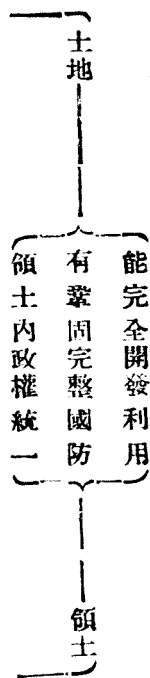 土地
能完全開發利用
有鞏固完整國防
領土內政權統一
領土